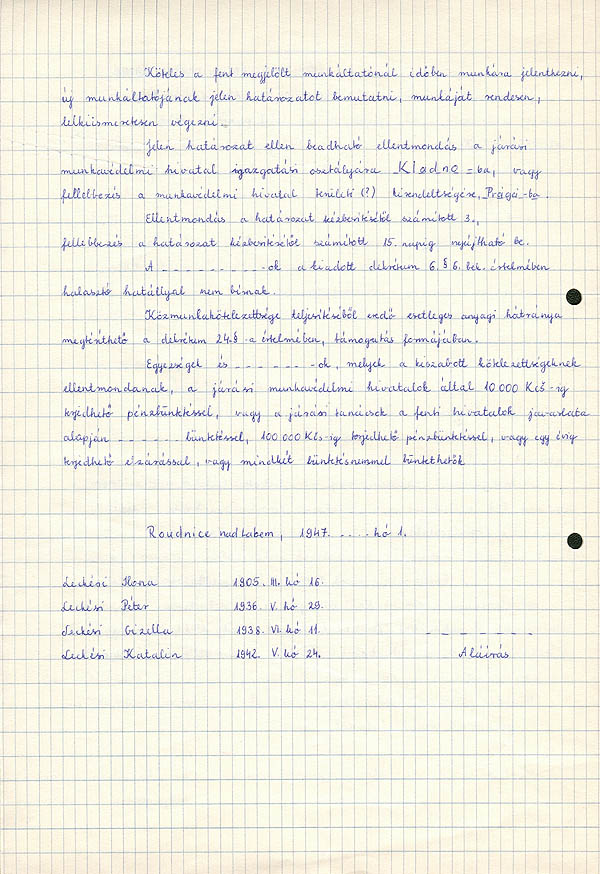 Köteles a fent megjelölt munkáltatónál időben munkára jelentkezni,
új munkáltatójának jelen határozatot bemutatni, munkáját rendesen,
lelkiismeretesen végezni.
Jelen határozat ellen beadható ellentmondás a járási
munkavédelmi hivatal igazgatási osztályára Kladno-ba, vagy
fellebbezés a munkavédelmi hivatal területi (?) kirendeltségére, Prágá-ba.
Ellentmondás a határozat kézbesítésétől számított 3.,
fellebbezés a határozat kézbesítésétől számított 15. napig nyújtható be.
A - - - - - - - - - - -ok a kiadott dekrétum 6. § 6. bek. értelmében
halasztó hatállyal nem bírnak.
Közmunkakötelezettsége teljesítéséből eredő esetleges anyagi hátránya
megtéríthető a dekrétum 24.§-a értelmében, támogatás formájában.
Egyezségek és - - - - - - -ok, melyek a kiszabott kötelezettségeknek
ellentmondanak, a járási munkavédelmi hivatalok által 10 000 Kčs-ig
terjedhető pénzbüntetéssel, vagy a járási tanácsok a fenti hivatalok javaslata
alapján - - - - - - büntetéssel, 100 000 Kčs-ig terjedhető pénzbüntetéssel, vagy egy évig
terjedhető elzárással, vagy mindkét büntetésnemmel büntethetők
Roudnice nad Labem, 1947. - - - - hó 1.
Leckési Ilona 1905. III. hó 16.
Leckési Péter 1936. V. hó 29.
Leckési Gizella 1938. VI. hó 11. - - - - - - - - -
Leckési Katalin 1942. V. hó 24. Aláírás